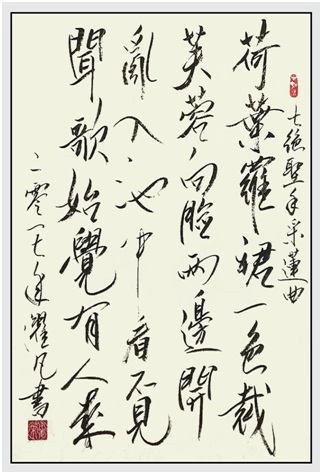 七絕聖手采蓮曲
荷葉羅裙一色裁
芙蓉向臉兩邊開
亂入池中看不見
聞歌始覺有人來
二零一七年凡書